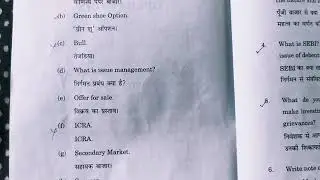 वाणिज्य पत्र बाजार।
(b) Green shoe Option.
"ग्रीन शू" ऑप्शन।
(c) Bull.
तेजड़िया।
(d) What is issue management?
निर्गमन प्रबंध क्या है?
(e) Offer for sale.
विक्रय का प्रस्ताव।
(f) ICRA.
ICRA.
(g) Secondary Market.
सहायक बाजार।
पूँजी बाजार से क्या
महत्व का वर्णन
4. What is SEBI?
issue of debent
SEBI का क्या
निर्गमन से संबंधित
5. What do you
make invest
grievances?
निवेशक से आप
उनकी शिकायत
6. Write note o